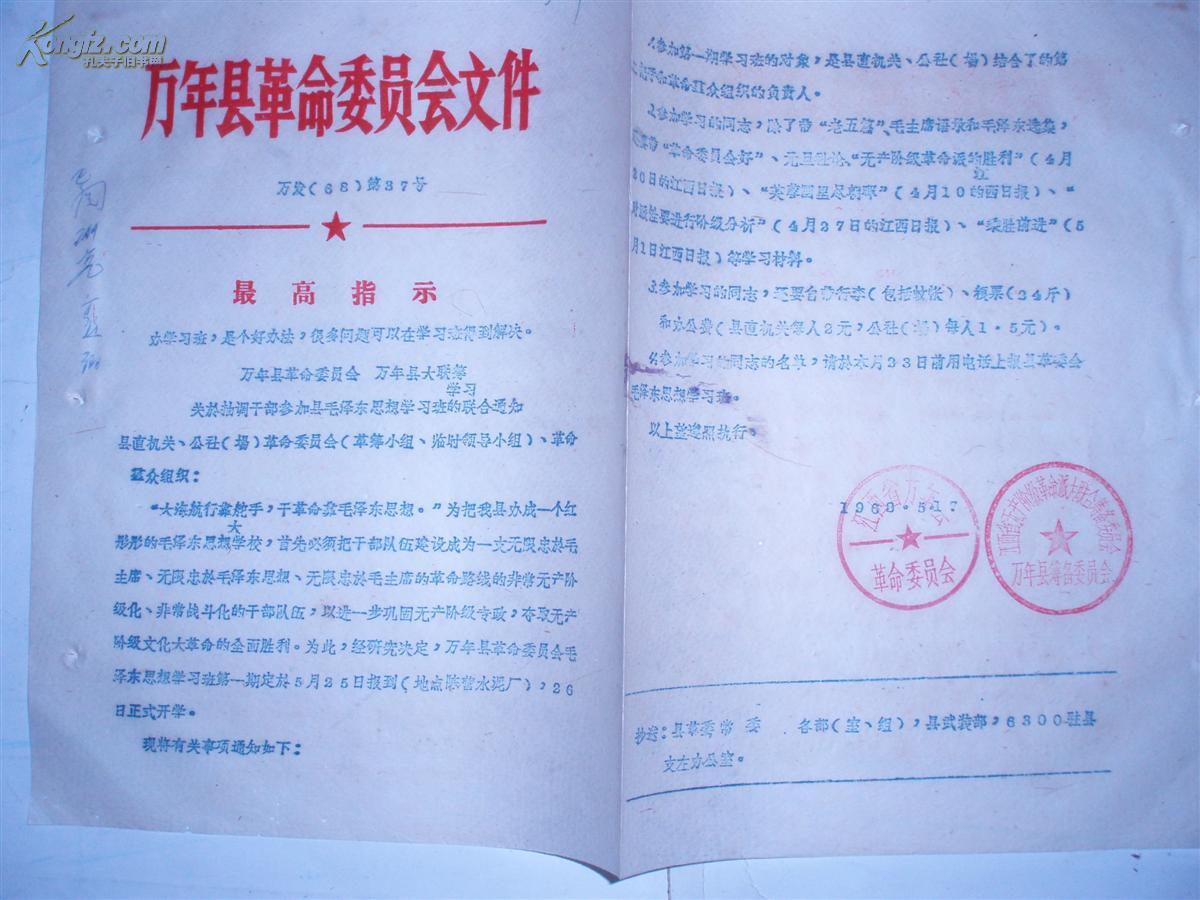 Kongfz.com
孔夫子旧书网
万年县革命委员会文件
万发(68)第37号
最高指示
办学习班，是个好办法，很多问题可以在学习班得到解决。
万年县革命委员会 万年县大联筹
学习
关於抽调干部参加县毛泽东思想学习班的联合通知
县直机关、公社(場)革命委员会(革筹小组、临时领导小组)、革命
羣众组织：
“大海航行靠舵手，干革命靠毛泽东思想。”为把我县办成一个红
大
彤彤的毛泽东思想学校，首先必须把干部队伍建设成为一支无限忠於毛
主席、无限忠於毛泽东思想、无限忠於毛主席的革命路线的非常无产阶
级化、非常战斗化的干部队伍，以进一步巩固无产阶级专政，夺取无产
阶级文化大革命的全面胜利。为此，经研究决定，万年县革命委员会毛
泽东思想学习班第一期定於5月25日报到(地点陈营水泥厂)，26
日正式开学。
现将有关事项通知如下：
1.参加第一期学习班的对象，是县直机关、公社(場)结合了的第
手和革命羣众组织的负责人。
2.参加学习的同志，除了带“老五篇”、毛主席语录和毛泽东选集，
带“革命委员会好”、元旦社论、“无产阶级革命派的胜利”(4月
江
20日的江西日报)、“芙蓉国里尽朝晖”(4月10的西日报)、“
对派性要进行阶级分析”(4月27日的江西日报)、“乘胜前进”(5
月1日江西日报)等学习材料。
3.参加学习的同志，还要自带行李(包括蚊帐)、粮票(34斤)
和办公费(县直机关每人2元，公社(場)每人1·5元)。
4.参加学习的同志的名单，请於本月23日前用电话上报县革委会
毛泽东思想学习班。
以上望遵照执行。
1968·517
江西省万年县
革命委员会
江西省无产阶级革命派大联合筹备委员会
万年县筹备委员会
抄送：县革委常委 各部(室、组)，县武装部，6300驻县
支左办公室。